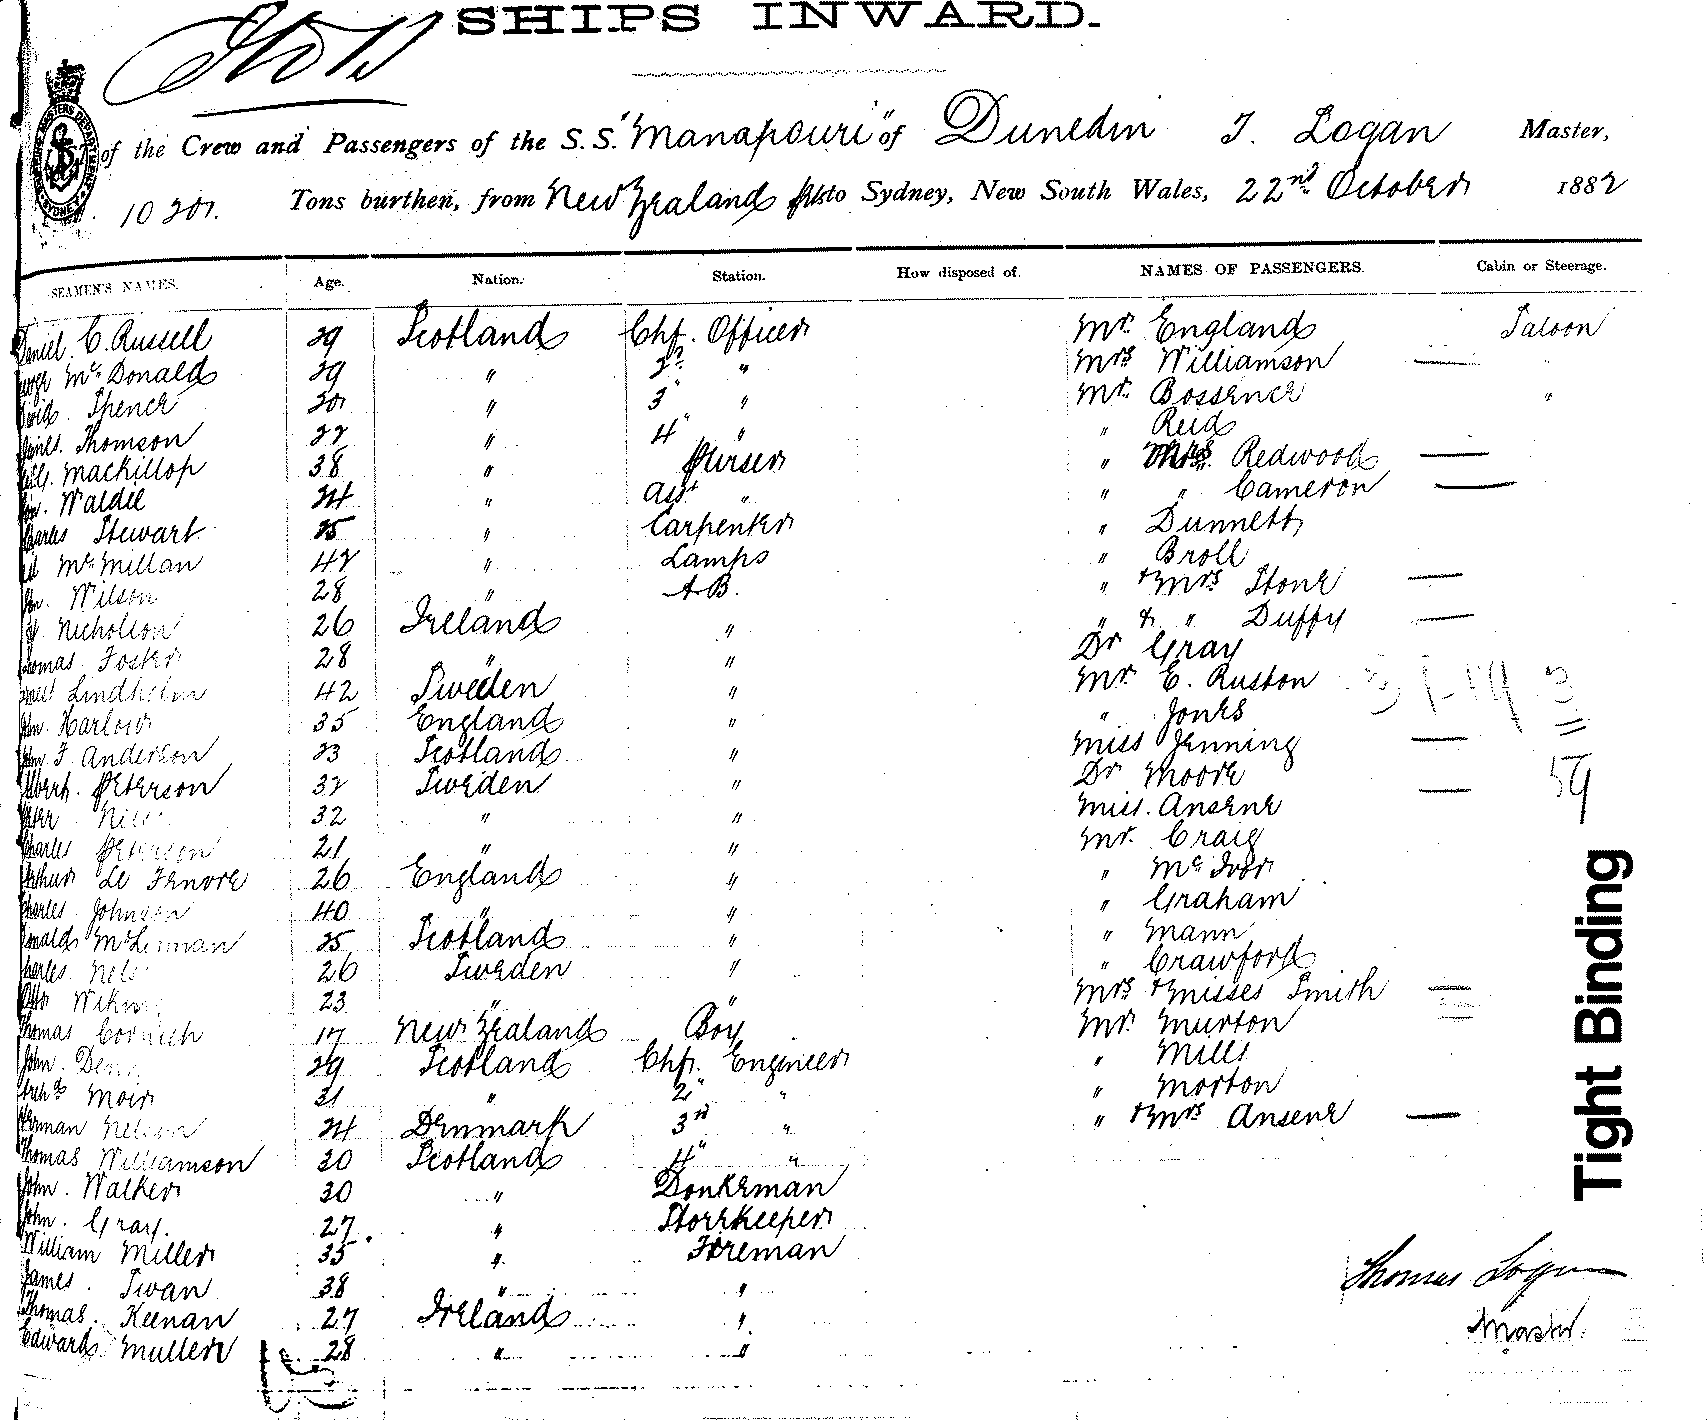 SHIPS INWARD.
of the Crew and Passengers of the S.S. "Manapouri" of Dunedin T. Logan Master,
Tons burthen, from New Zealand to Sydney, New South Wales, 22nd October 1882
SEAMEN'S NAMES. Age. Nation. Station. How disposed of. NAMES OF PASSENGERS. Cabin or Steerage.
Daniel C. Russell 29 Scotland Chf. Officer Mr. England Saloon
McDonald 29 " 2nd " Mrs Williamson —
David Spence " 3 " Mr. Bossence "
Thomson 22 " 4 " " Reid
Mackillop 38 " Purser " Mrs. Redwood —
Waldie 24 " Asst " " " Cameron —
Charles Stewart 25 " Carpenter " Dunnett
McMillan 42 " Lamps " Broll
Jn. Wilson 28 " A.B. " + Mrs Stone —
Nicholson 26 Ireland " " & " Duffy —
Thomas Foster 28 " " Dr Gray
Lindholm 42 Sweden " Mr E. Ruston
John. Harlow 35 England " " Jones
John F. Anderson 23 Scotland " Miss Jenning —
Peterson 32 Sweden " Dr Moore
32 " " Miss. Ansene —
Charles Peterson 21 " " Mr. Craig
Arthur Le Fenore 26 England " " McIvor
Charles Johnson 40 " " " Graham
Donald McLennan 25 Scotland " " Mann
Charles 26 Sweden " " Crawford
Otto 23 " " Mrs + Misses Smith —
Thomas Cornish 17 New Zealand Boy Mr. Murton
John. 29 Scotland Chf. Engineer " Mills
Archd Moir 31 " 2 " " Morton
Herman Nelson 24 Denmark 3rd " " + Mrs Ansene —
Thomas Williamson 30 Scotland 4 "
John. Walker 30 " Donkeman
John. Gray. 27. " Storekeeper
William Miller 35 " Fireman
James. Swan 38 " "
Thomas. Keenan 27 Ireland "
Edward Mullen 28 " "
59
Tight Binding
Thomas Logan
Master.